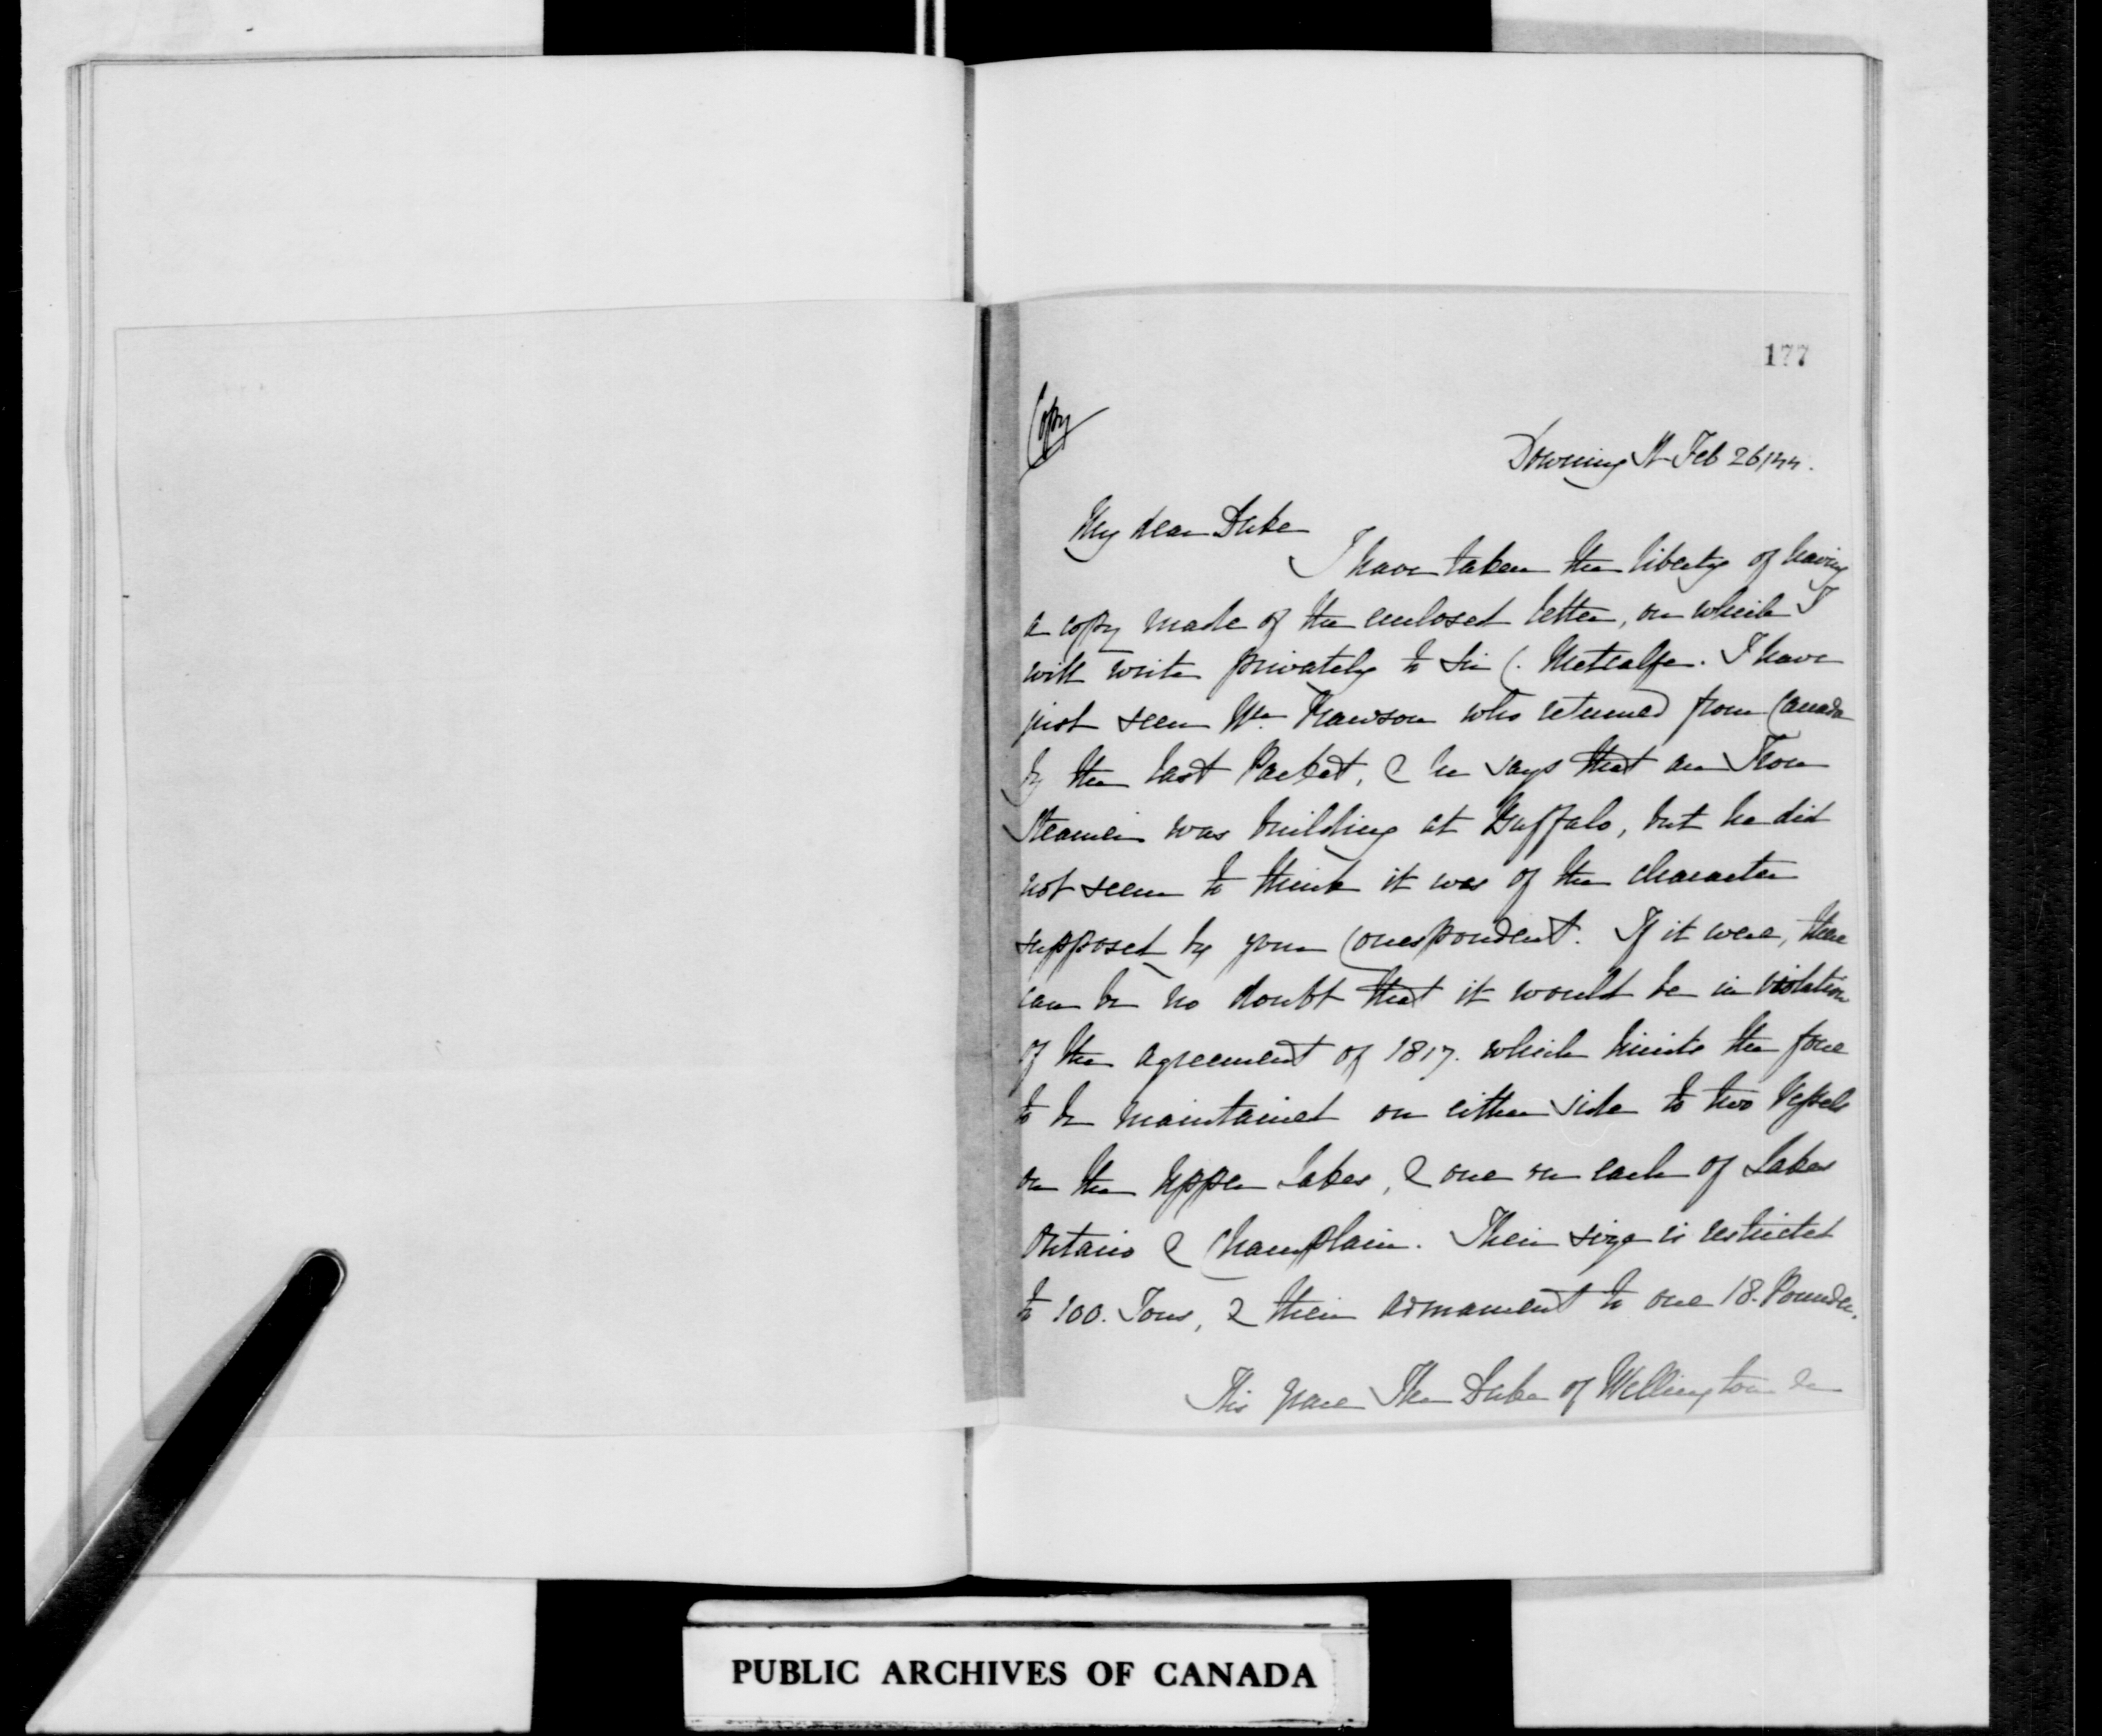 177
Copy
Downing St Feb 26/44.
My dear Duke
I have taken the liberty of having
a copy made of the enclosed letter, on which I
will write privately to Sir C. Metcalfe. I have
just seen Mr. Rawson who returned from Canada
by the last Packet, & he says that an Iron
Steamer was building at Buffalo, but he did
not seem to think it was of the character
supposed by your Correspondent. If it were, there
can be no doubt that it would be in violation
of the agreement of 1817. which limits the force
to be maintained on either side to two Vessels
on the Upper Lakes, & one on each of Lakes
Ontario & Champlain. Their size is restricted
to 100. Tons, & their armament to one 18. Pounder.
His Grace The Duke of Wellington
PUBLIC ARCHIVES OF CANADA